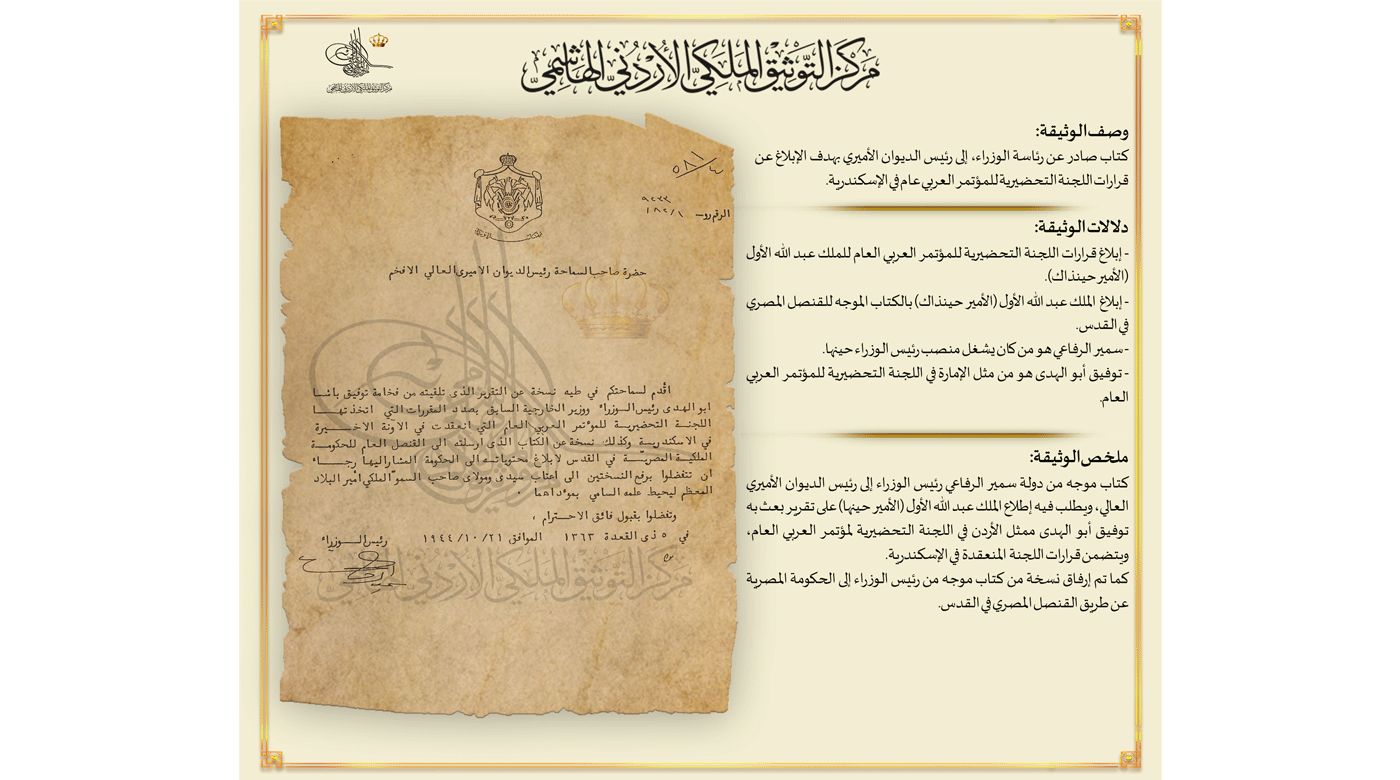 مركز التوثيق الملكي الأردني الهاشمي
مركز التوثيق الملكي الأردني الهاشمي
وصف الوثيقة:
كتاب صادر عن رئاسة الوزراء، إلى رئيس الديوان الأميري بهدف الإبلاغ عن
قرارات اللجنة التحضيرية للمؤتمر العربي عام في الإسكندرية.
دلالات الوثيقة:
- إبلاغ قرارات اللجنة التحضيرية للمؤتمر العربي العام للملك عبد الله الأول
(الأمير حينذاك).
- إبلاغ الملك عبد الله الأول (الأمير حينذاك) بالكتاب الموجه للقنصل المصري
في القدس.
- سمير الرفاعي هو من كان يشغل منصب رئيس الوزراء حينها.
- توفيق أبو الهدى هو من مثل الإمارة في اللجنة التحضيرية للمؤتمر العربي
العام.
ملخص الوثيقة:
كتاب موجه من دولة سمير الرفاعي رئيس الوزراء إلى رئيس الديوان الأميري
العالي، ويطلب فيه إطلاع الملك عبد الله الأول (الأمير حينها) على تقرير بعث به
توفيق أبو الهدى ممثل الأردن في اللجنة التحضيرية لمؤتمر العربي العام،
ويتضمن قرارات اللجنة المنعقدة في الإسكندرية.
كما تم إرفاق نسخة من كتاب موجه من رئيس الوزراء إلى الحكومة المصرية
عن طريق القنصل المصري في القدس.
الرقم رو
حضرة صاحب السماحة رئيس الديوان الاميرى العالي الافخم
اقدم لسماحتكم في طيه نسخة عن التقرير الذى تلقيته من فخامة توفيق باشا
ابو الهدى رئيس الوزراء ووزير الخارجية السابق بصدد المقررات التي اتخذتها
اللجنة التحضيرية للمؤتمر العربي العام التي انعقدت في الاونة الاخيرة
في الاسكندرية وكذلك نسخة عن الكتاب الذى ارسلته الى القنصل العام للحكومة
الملكية المصرية في القدس لابلاغ محتوياته الى الحكومة المشار اليها رجاء
ان تتفضلوا برفع النسختين الى اعتاب سيدى ومولاى صاحب السمو الملكي امير البلاد
المعظم ليحيط علمه السامي بمؤداهما ٠
وتفضلوا بقبول فائق الاحترام ،
في ٥ ذى القعدة ١٣٦٣ الموافق ١٩٤٤/١٠/٢١
رئيس الوزراء
مركز التوثيق الملكي الأردني الهاشمي